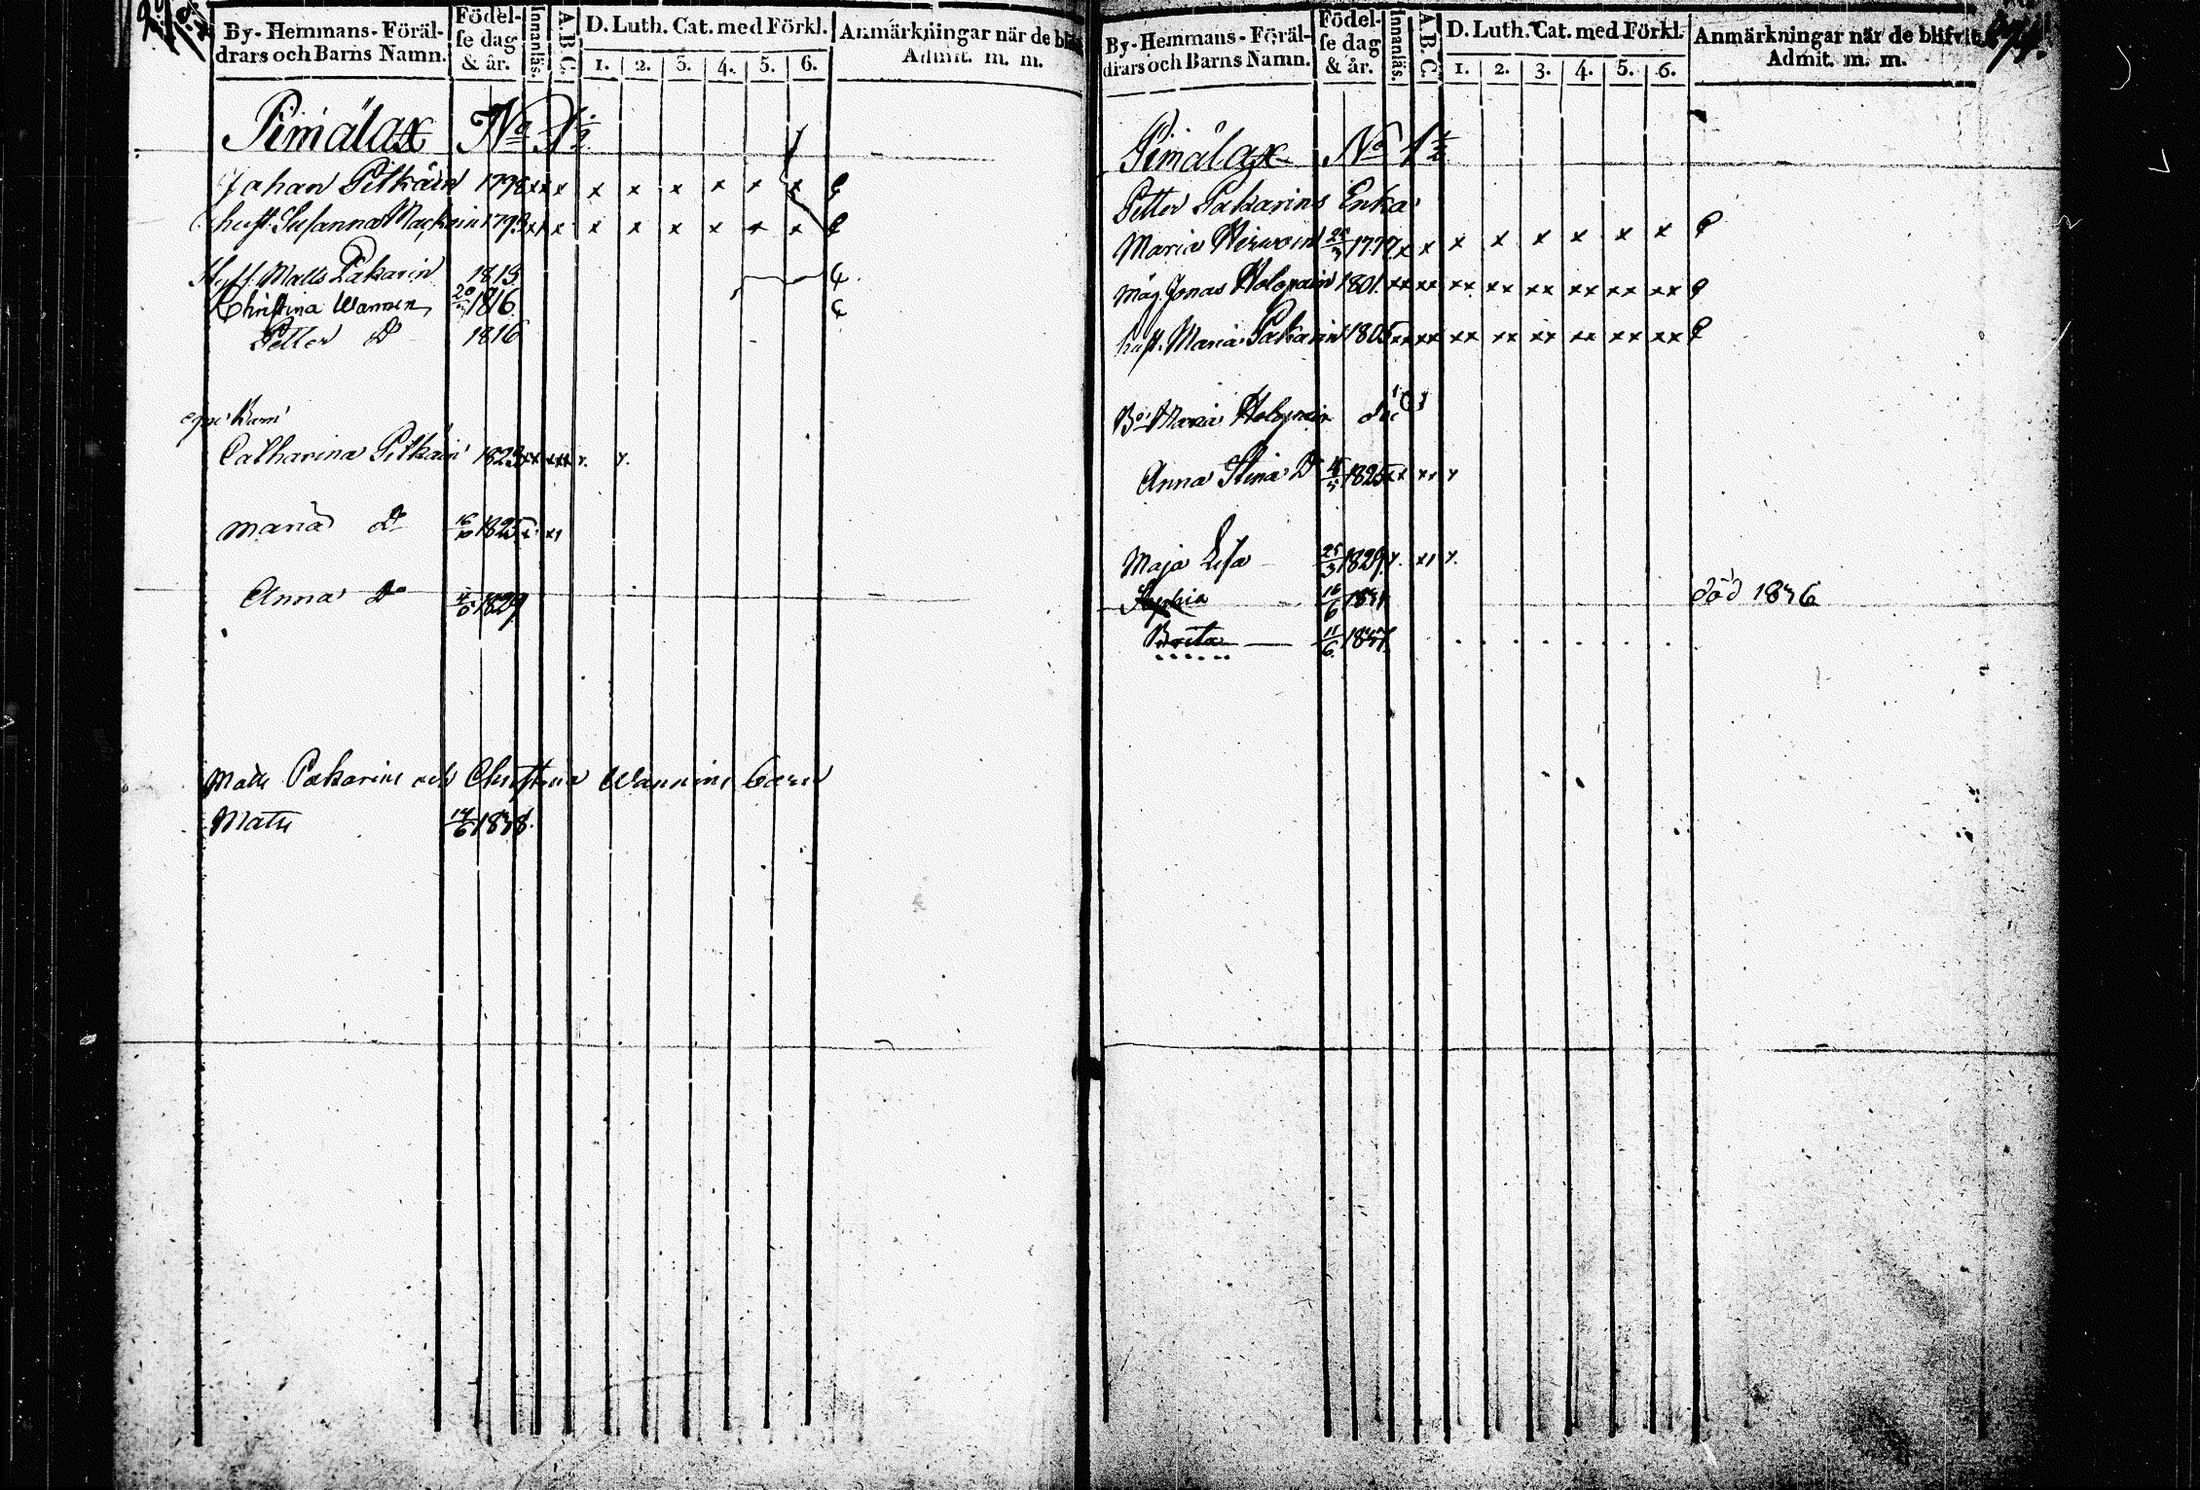 By-Hemmans-Föräl-
drars och Barns Namn.
Födel-
se dag
& år.
Innanläs.
A.B.C.
D. Luth. Cat. med Förkl.
1. 2. 3. 4. 5. 6.
Anmärkningar när de
Admit. m. m.
Pimälax No 1 1/2
Johan Pitkäin 1798 xx x x x x x x x
hust. Susanna 1793 xx x x x x x x x
Matts Pakarin 1815
Christina Wannen 20 1816
Petter Do 1816
Barn
Catharina Pitkäin 1823
Maria Do 16/10 1825
Anna Do 1829
Matts Pakarins och Christina Wannins barn
Matts 17/6 1838.
274.
By-Hemmans-Föräl-
drars och Barns Namn.
Födel-
se dag
& år.
Innanläs.
A.B.C.
D. Luth. Cat. med Förkl.
1. 2. 3. 4. 5. 6.
Anmärkningar när de blifvit
Admit. m. m.
Pimälax No 1 1/2
Petter Pakarins Enka
Maria Hirwoin 1777. x x x x x x x x
Måg Jonas Holopain 1801. xx xx xx xx xx xx xx xx
hust. Maria Pakarin 1805 xx xx xx xx xx xx xx xx
Maria Holopain
Anna Stina Do 1825
Maja Lisa 25/3 1829
Sophia 16/6 1834 död 1836
Brita 11/6 1837.